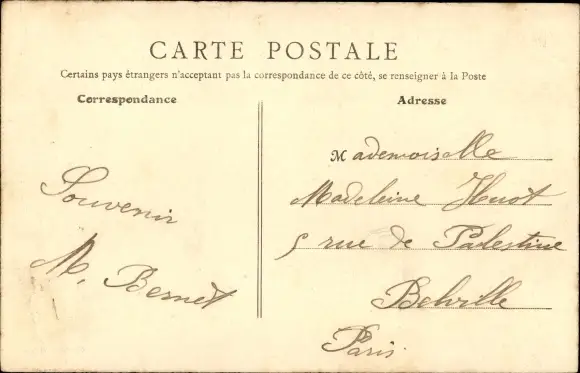 CARTE POSTALE
Certains pays étrangers n'acceptant pas la correspondance de ce côté, se renseigner à la Poste
Correspondance
Adresse
Souvenir
M. Bernet
Mademoiselle
Madeleine Huot
5 rue de Palestine
Belville
Paris.